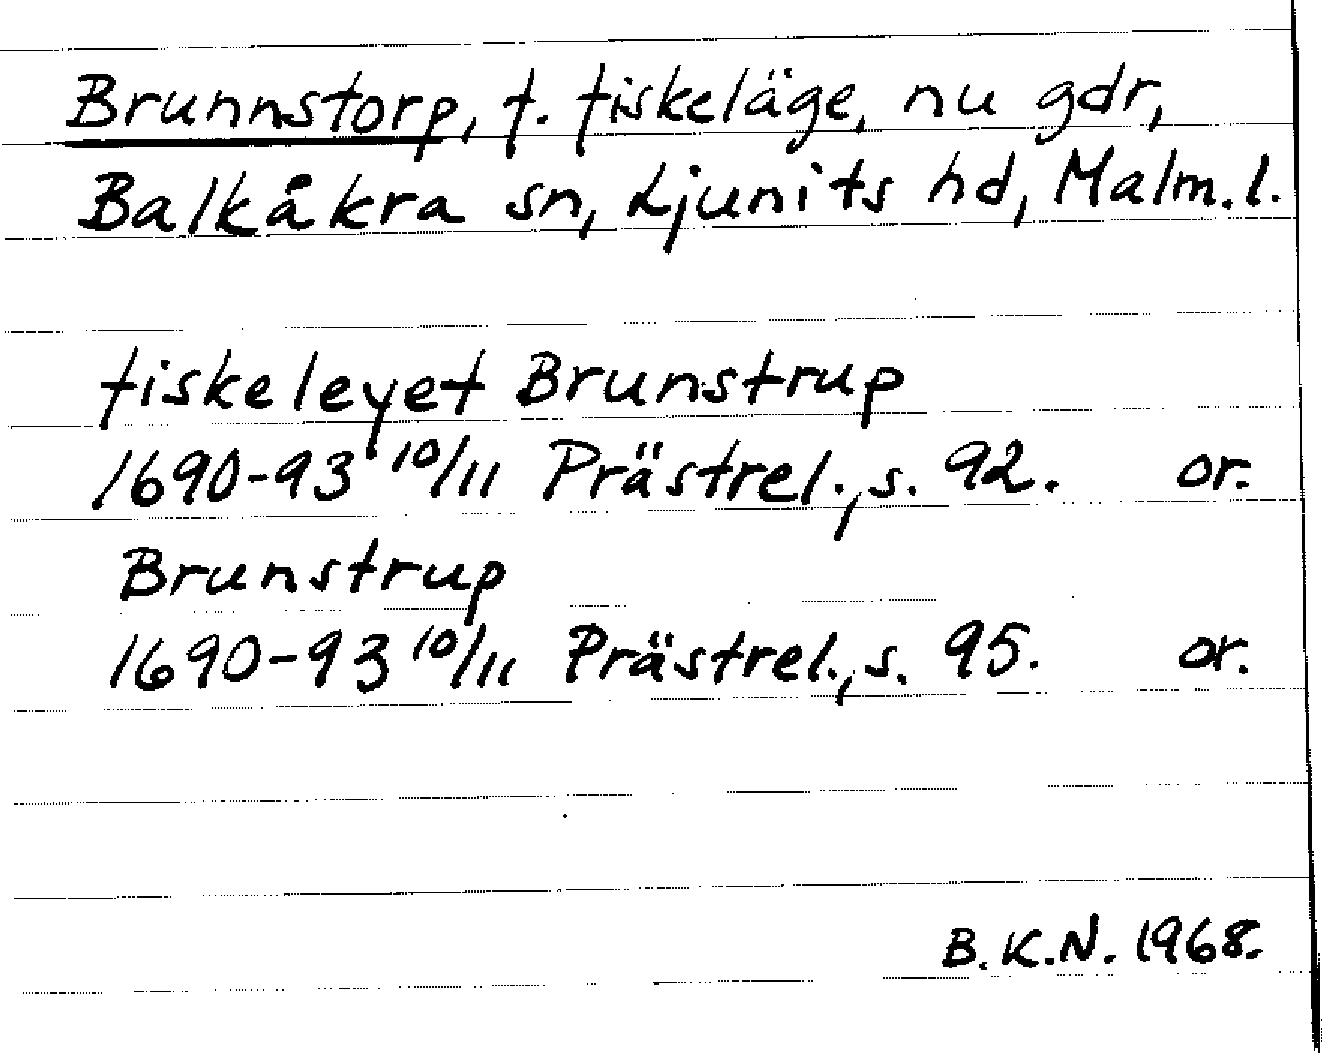 Brunnstorp, f. fiskeläge, nu gdr,
Balkåkra sn, Ljunits hd, Malm.l.
fiskeleyet Brunstrup
1690-93 10/11 Prästrel., s. 92. or.
Brunstrup
1690-93 10/11 Prästrel., s. 95. or.
B.K.N. 1968.